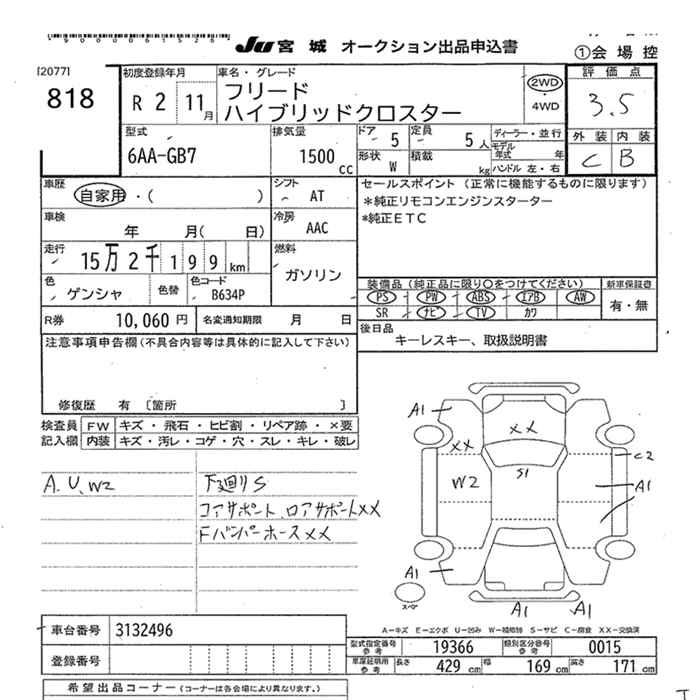 Ju 宮城 オークション出品申込書
①会場控
[2077]
818
初度登録年月
R 2 11月
車名・グレード
フリード
ハイブリッドクロスター
2WD
・
4WD
評価点
3.5
外装 内装
C B
型式
6AA-GB7
排気量
1500 cc
ドア 5
定員 5人
ディーラー・並行
モデル年式 年
形状 W
積載 kg
ハンドル 左・右
車歴
自家用・( )
シフト
AT
セールスポイント (正常に機能するものに限ります)
*純正リモコンエンジンスターター
*純正ETC
車検
年 月( 日)
冷房
AAC
走行
15万2千199km
燃料
ガソリン
色
ゲンシャ
色替
色コード
B634P
装備品(純正品に限り○をつけてください)
PS PW ABS エアB AW
SR ナビ TV カワ
新車保証書
有・無
R券 10,060円
名変通知期限 月 日
後日品
キーレスキー、取扱説明書
注意事項申告欄(不具合内容等は具体的に記入して下さい)
修復歴 有 [箇所 ]
検査員記入欄
FW キズ・飛石・ヒビ割・リペア跡・×要
内装 キズ・汚レ・コゲ・穴・スレ・キレ・破レ
A、U、W2
下廻りS
コアサポート、ロアサポートXX
FバンパーホースXX
A1
XX
XX
C2
W2
S1
A1
A1
A1
A1
スペア
A-キズ E-エクボ U-凹み W-補修跡 S-サビ C-腐食 XX-交換済
車台番号 3132496
登録番号
型式指定番号 参考 19366
類別区分番号 参考 0015
車庫証明用 参考 長さ 429 cm 幅 169 cm 高さ 171 cm
希望出品コーナー(コーナーは各会場により異なります。)